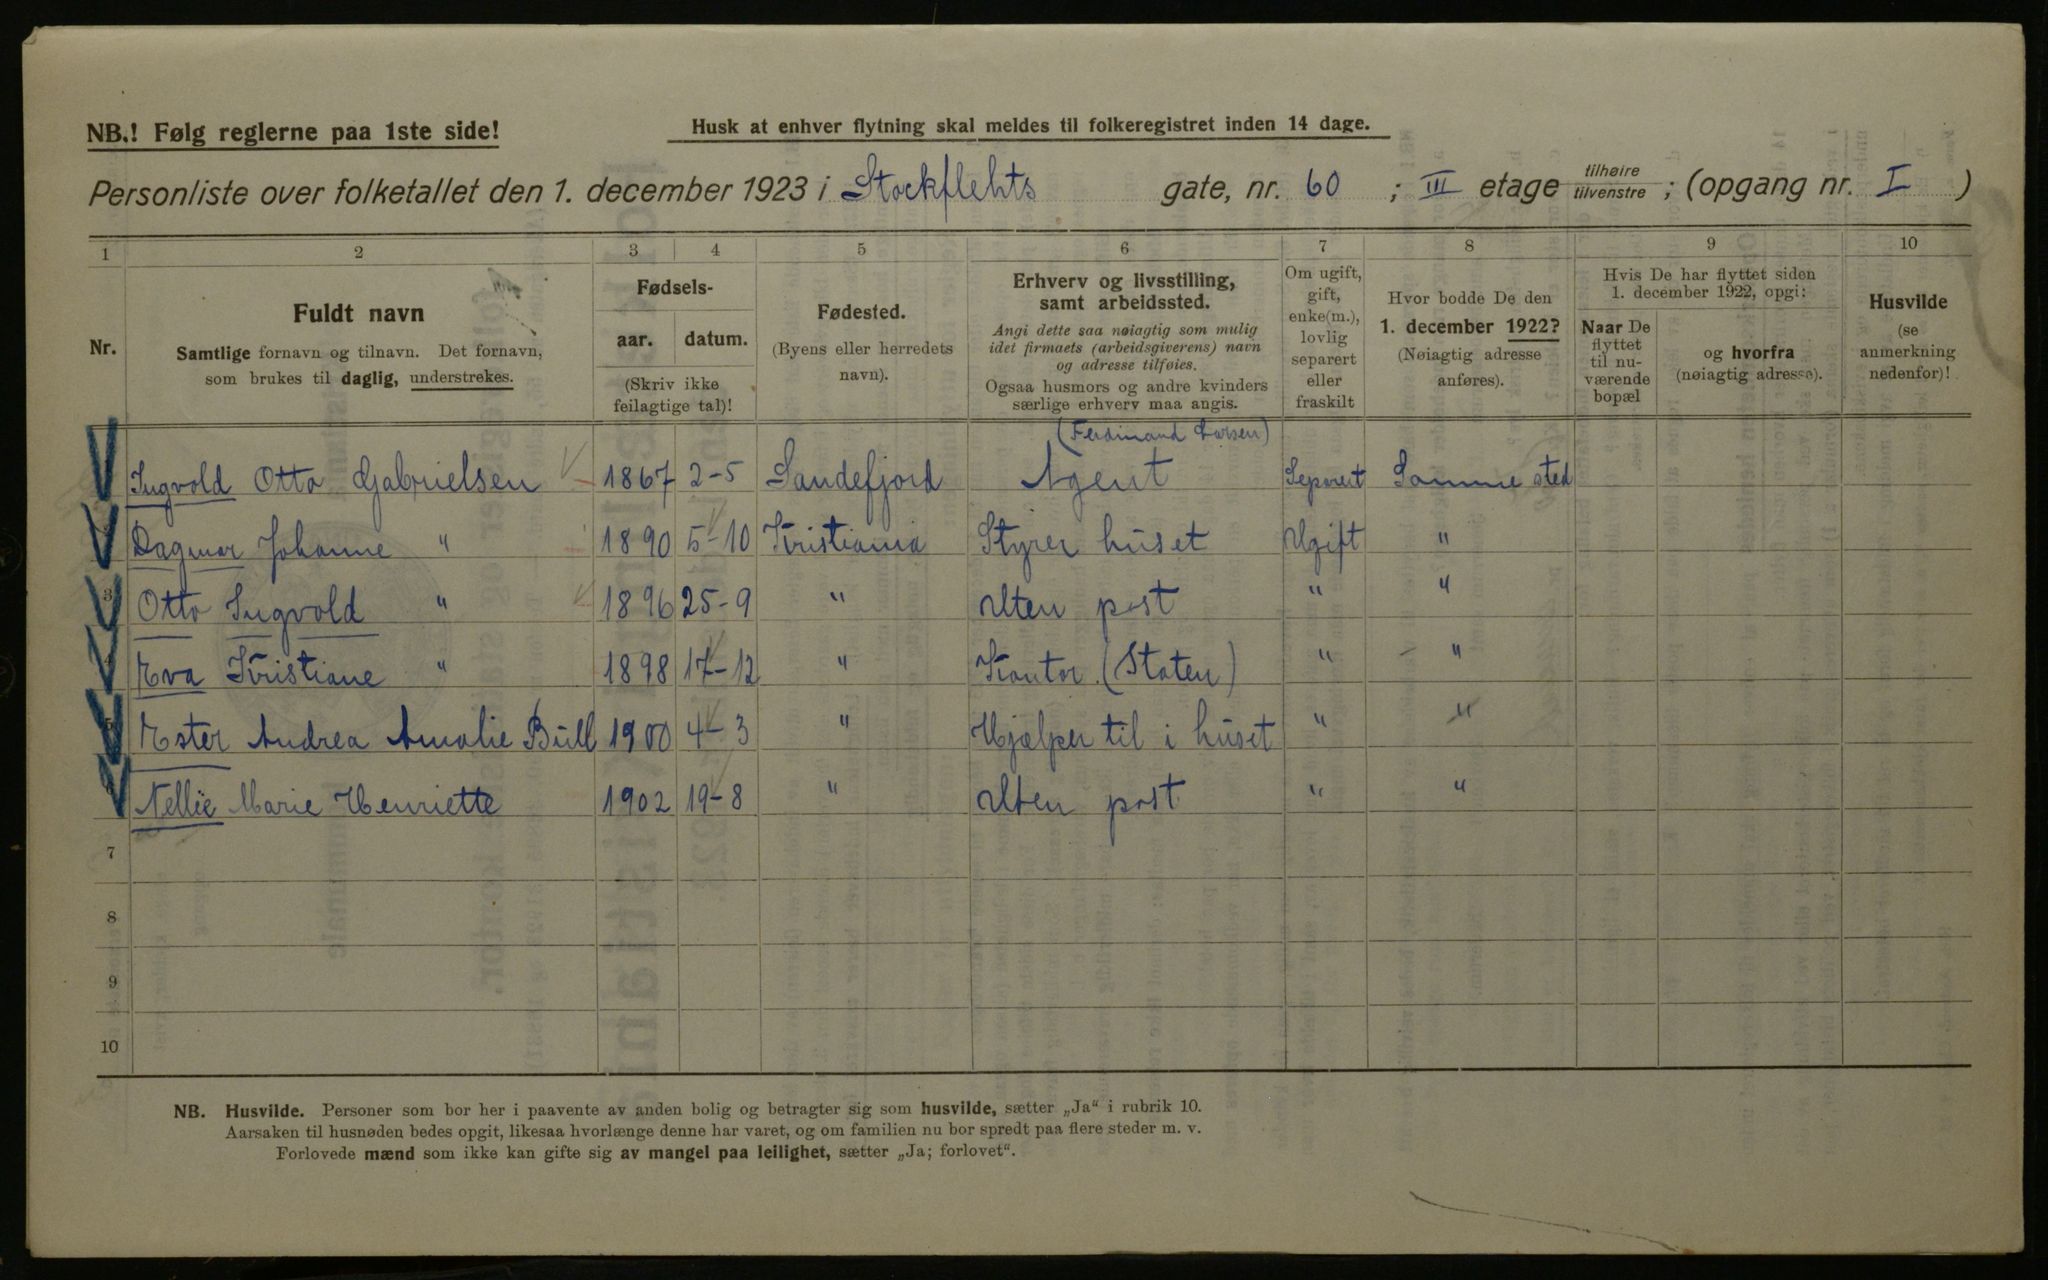 NB.! Følg reglerne paa 1ste side!
Husk at enhver flytning skal meldes til folkeregistret inden 14 dage.
Personliste over folketallet den 1. december 1923 i Stockflehts gate, nr. 60 ; III etage tilhøire tilvenstre ; (opgang nr. I )
1 2 3 4 5 6 7 8 9 10
Nr.
Fuldt navn
Samtlige fornavn og tilnavn. Det fornavn,
som brukes til daglig, understrekes.
Fødsels-
aar. datum.
(Skriv ikke
feilagtige tal)!
Fødested.
(Byens eller herredets
navn).
Erhverv og livsstilling,
samt arbeidssted.
Angi dette saa nøiagtig som mulig
idet firmaets (arbeidsgiverens) navn
og adresse tilføies.
Ogsaa husmors og andre kvinders
særlige erhverv maa angis.
Om ugift,
gift,
enke(m.),
lovlig
separert
eller
fraskilt
Hvor bodde De den
1. december 1922?
(Nøiagtig adresse
anføres).
Hvis De har flyttet siden
1. december 1922, opgi:
Naar De
flyttet
til nu-
værende
bopæl
og hvorfra
(nøiagtig adresse).
Husvilde
(se
anmerkning
nedenfor)!
(Ferdinand Larsen)
Ingvold Otto Gabrielsen 1867 2-5 Sandefjord Agent Seperert Samme sted
Dagmar Johanne " 1890 5-10 Kristiania Styrer huset Ugift "
3 Otto Ingvold " 1896 25-9 " Uten post " "
4 Eva Kristiane " 1898 17-12 " Kontor (Staten) " "
5 Ester Andrea Amalie Bull 1900 4-3 " Hjælper til i huset " "
6 Nellie Marie Henriette 1902 19-8 " Uten post " "
7
8
9
10
NB. Husvilde. Personer som bor her i paavente av anden bolig og betragter sig som husvilde, sætter „Ja“ i rubrik 10.
Aarsaken til husnøden bedes opgit, likesaa hvorlænge denne har varet, og om familien nu bor spredt paa flere steder m. v.
Forlovede mænd som ikke kan gifte sig av mangel paa leilighet, sætter „Ja; forlovet“.